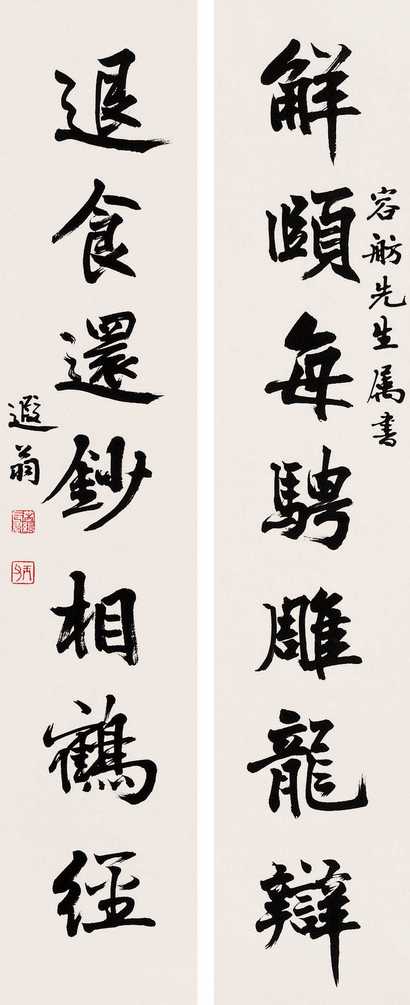 解頤每騁雕龍辯
容舫先生属書
退食還鈔相鶴經
遐翁